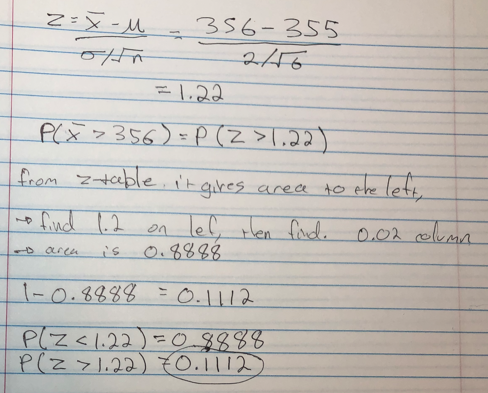 z = x̄ - μ / σ/√n = 356 - 355 / 2/√6
= 1.22
P(x̄ > 356) = P(z > 1.22)
from z-table, it gives area to the left,
→ find 1.2 on lef, then find. 0.02 column
→ area is 0.8888
1 - 0.8888 = 0.1112
P(z < 1.22) = 0.8888
P(z > 1.22) = 0.1112